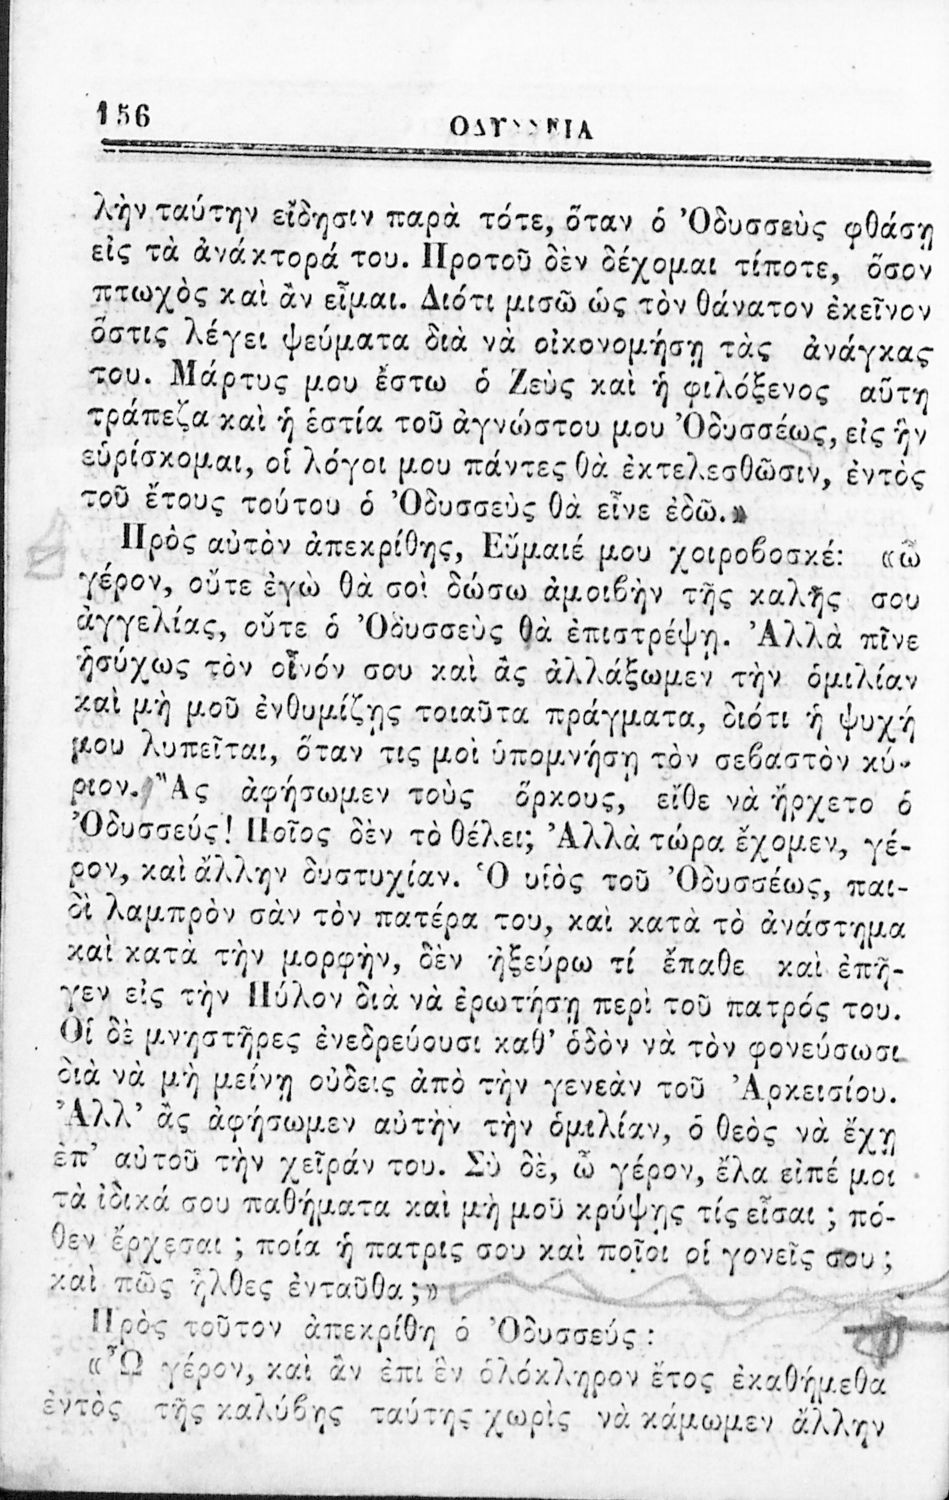 156
ΟΔΥΣΣΕΙΑ
λὴν ταύτην εἴδησιν παρὰ τότε, ὅταν ὁ Ὀδυσσεὺς φθάσῃ
εἰς τὰ ἀνάκτορά του. Προτοῦ δὲν δέχομαι τίποτε, ὅσον
πτωχὸς καὶ ἂν εἶμαι. Διότι μισῶ ὡς τὸν θάνατον ἐκεῖνον
ὅστις λέγει ψεύματα διὰ νὰ οἰκονομήσῃ τὰς ἀνάγκας
του. Μάρτυς μου ἔστω ὁ Ζεὺς καὶ ἡ φιλόξενος αὕτη
τράπεζα καὶ ἡ ἑστία τοῦ ἀγνώστου μου Ὀδυσσέως, εἰς ἣν
εὑρίσκομαι, οἱ λόγοι μου πάντες θὰ ἐκτελεσθῶσιν, ἐντὸς
τοῦ ἔτους τούτου ὁ Ὀδυσσεὺς θὰ εἶνε ἐδῶ.»
Πρὸς αὐτὸν ἀπεκρίθης, Εὔμαιέ μου χοιροβοσκέ: «ὦ
γέρον, οὔτε ἐγὼ θὰ σοὶ δώσω ἀμοιβὴν τῆς καλῆς σου
ἀγγελίας, οὔτε ὁ Ὀδυσσεὺς θὰ ἐπιστρέψῃ. Ἀλλὰ πῖνε
ἡσύχως τὸν οἶνόν σου καὶ ἂς ἀλλάξωμεν τὴν ὁμιλίαν
καὶ μὴ μοῦ ἐνθυμίζῃς τοιαῦτα πράγματα, διότι ἡ ψυχή
μου λυπεῖται, ὅταν τις μοὶ ὑπομνήσῃ τὸν σεβαστὸν κύ-
ριον. Ἂς ἀφήσωμεν τοὺς ὅρκους, εἴθε νὰ ἤρχετο ὁ
Ὀδυσσεύς! Ποῖος δὲν τὸ θέλει; Ἀλλὰ τώρα ἔχομεν, γέ-
ρον, καὶ ἄλλην δυστυχίαν. Ὁ υἱὸς τοῦ Ὀδυσσέως, παι-
δὶ λαμπρὸν σὰν τὸν πατέρα του, καὶ κατὰ τὸ ἀνάστημα
καὶ κατὰ τὴν μορφὴν, δὲν ἠξεύρω τί ἔπαθε καὶ ἐπῆ-
γεν εἰς τὴν Πύλον διὰ νὰ ἐρωτήσῃ περὶ τοῦ πατρός του.
Οἱ δὲ μνηστῆρες ἐνεδρεύουσι καθ' ὁδὸν νὰ τὸν φονεύσωσι
διὰ νὰ μὴ μείνῃ οὐδεις ἀπὸ τὴν γενεὰν τοῦ Ἀρκεισίου.
Ἀλλ' ἂς ἀφήσωμεν αὐτὴν τὴν ὁμιλίαν, ὁ θεὸς νὰ ἔχῃ
ἐπ' αὐτοῦ τὴν χεῖράν του. Σὺ δὲ, ὦ γέρον, ἔλα εἰπέ μοι
τὰ ἰδικά σου παθήματα καὶ μὴ μοῦ κρύψῃς τίς εἶσαι ; πό-
θεν ἔρχεσαι ; ποία ἡ πατρις σου καὶ ποῖοι οἱ γονεῖς σου ;
καὶ πῶς ἦλθες ἐνταῦθα ;»
Πρὸς τοῦτον ἀπεκρίθη ὁ Ὀδυσσεύς :
«Ὦ γέρον, καὶ ἂν ἐπὶ ἓν ὁλόκληρον ἔτος ἐκαθήμεθα
ἐντὸς τῆς καλύβης ταύτης χωρὶς νὰ κάμωμεν ἄλλην